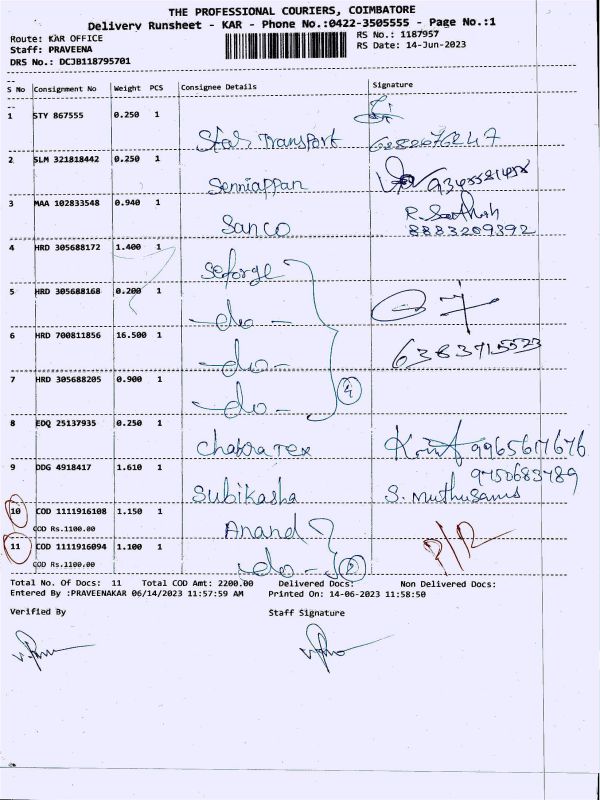 THE PROFESSIONAL COURIERS, COIMBATORE
Delivery Runsheet - KAR - Phone No.:0422-3505555 - Page No.:1
Route: KAR OFFICE
RS No.: 1187957
Staff: PRAVEENA
RS Date: 14-Jun-2023
DRS No.: DCJB118795701
S No Consignment No Weight PCS Consignee Details Signature
1 STY 867555 0.250 1
Star Transport
2 SLM 321818442 0.250 1
Senniappan
3 MAA 102833548 0.940 1 R. Sathish
Sanco 8883209392
4 HRD 305688172 1.400 1
Seforge
5 HRD 305688168 0.200 1
-do-
6 HRD 700811856 16.500 1
-do- 6383715523
7 HRD 305688205 0.900 1
-do- 4
8 EDQ 25137935 0.250 1
Chakra Tex 9965617676
9 DDG 4918417 1.610 1 9750683789
Subikasha S. Muthusami
10 COD 1111916108 1.150 1
COD Rs.1100.00 Anand
11 COD 1111916094 1.100 1
COD Rs.1100.00 -do- 2
Total No. Of Docs: 11 Total COD Amt: 2200.00 Delivered Docs: Non Delivered Docs:
Entered By :PRAVEENAKAR 06/14/2023 11:57:59 AM Printed On: 14-06-2023 11:58:50
Verified By Staff Signature